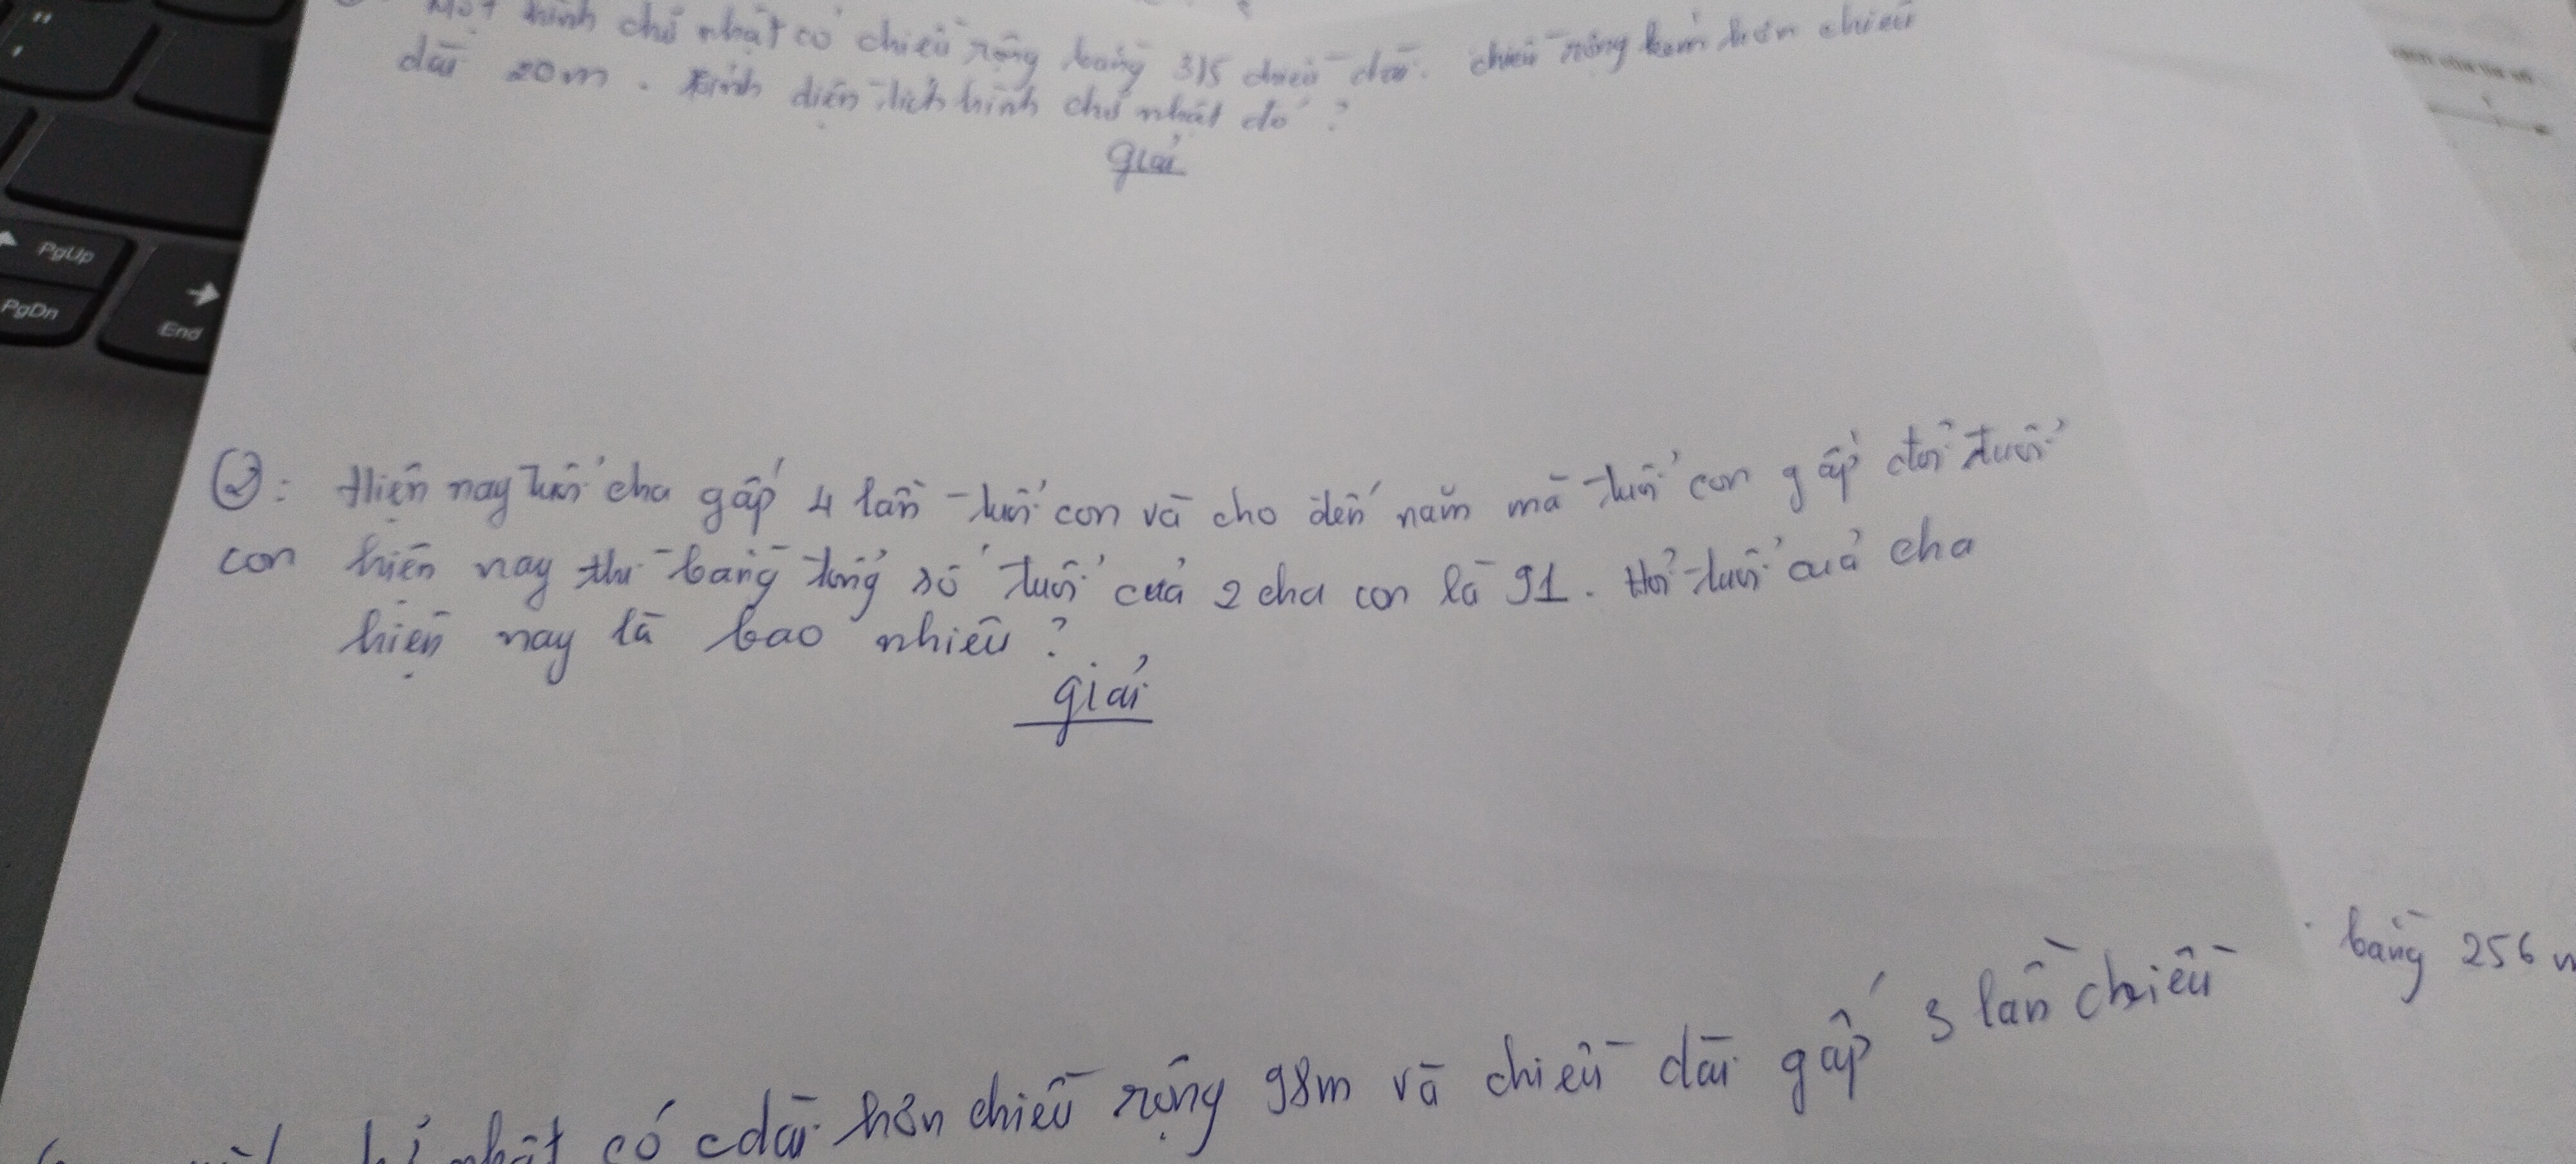 Một hình chữ nhật có chiều rộng bằng 3/5 chiều dài. chiều rộng kém hơn chiều
dài 20m. Tính diện tích hình chữ nhật đó?
giải
②: Hiện nay tuổi cha gấp 4 lần tuổi con và cho đến năm mà tuổi con gấp đôi tuổi
con hiện nay thì bằng tổng số tuổi của 2 cha con là 91. Hỏi tuổi của cha
hiện nay là bao nhiêu?
giải
bằng 256
nhật có cdài hơn chiều rộng 98m và chiều dài gấp 3 lần chiều
PgUp
PgDn
End